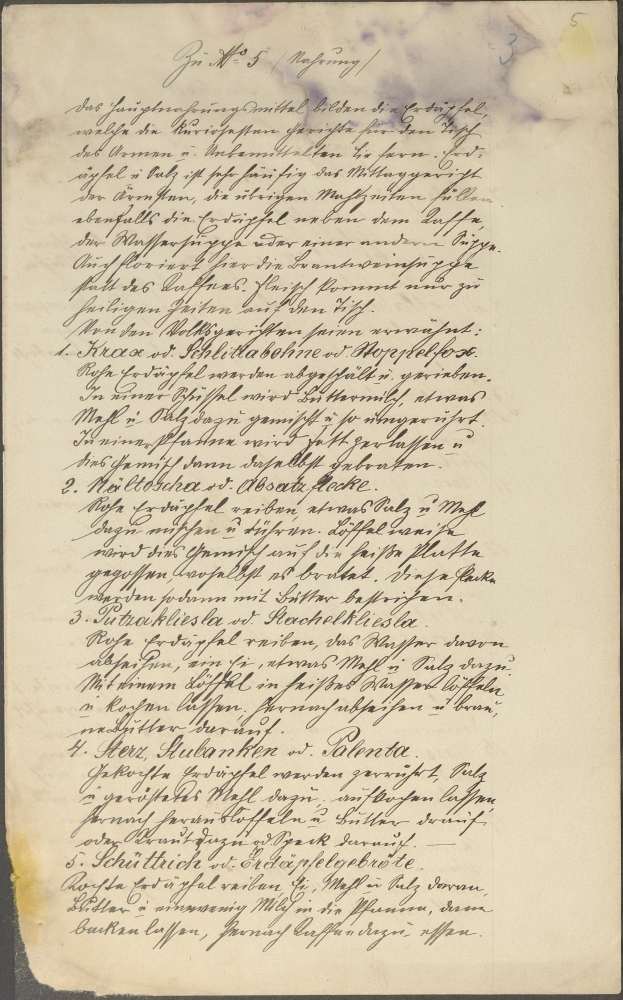 5
3
Zu No 5 (Nahrung)
Das Hauptnahrungsmittel bilden die Erdäpfel,
welche die kuriosesten Gerichte für den Tisch
des Armen u. Unbemittelten liefern. Erd-
äpfel u Salz ist sehr häufig das Mittaggericht
der Ärmsten, die übrigen Mahlzeiten füllen
ebenfalls die Erdäpfel neben dem Kaffe,
der Wassersuppe oder einer anderen Suppe.
Auch floriert hier die Brantweinsuppe
statt des Kaffees. Fleisch kommt nur zu
heiligen Zeiten auf den Tisch.
Von den Volksgerichten seien erwähnt:
1. Krax od. Schlittabohne od Stoppelfox.
Rohe Erdäpfel werden abgeschält u. gerieben.
In einer Schüssel wird Buttermilch, etwas
Mehl u. Salz dazu gemischt u so umgerührt.
In einer Pfanne wird Fett zerlassen u
dies Gemisch dann daselbst gebraten.
2. od. Absatzflecke.
Rohe Erdäpfel reiben, etwas Salz u Mehl
dazu mischen u rühren. Löffelweise
wird dies Gemisch auf die heiße Platte
gegossen, woselbst es bratet. Diese Flecke
werden sodann mit Butter bestrichen.
3. Putzakliesla od Stachelkliesla.
Rohe Erdäpfel reiben, das Wasser davon
abseihen, ein Ei, etwas Mehl u Salz dazu.
Mit einem Löffel in heißes Wasser löffeln
u kochen lassen. Hernach abseihen u brau-
ne Butter darauf.
4. Sterz, Stubanken od. Palenta.
Gekochte Erdäpfel werden zerrührt, Salz
u geröstetes Mehl dazu, aufkochen lassen,
hernach herauslöffeln u Butter drauf
oder Kraut dazu od Speck darauf. —
5. Schüttrich od. Erdäpfelgebröte.
Kochte Erdäpfel reiben, Ei, Mehl u Salz daran,
Butter u ein wenig Milch in die Pfanne, dann
backen lassen, hernach Kaffee dazu essen.